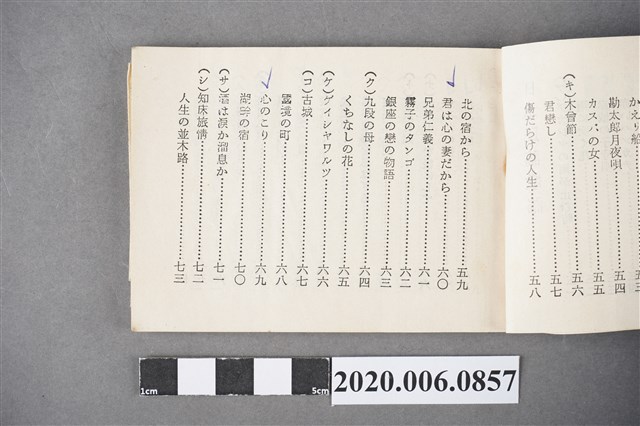 かえり船……五三
勘太郎月夜唄……五四
カスバの女……五五
(キ)木曾節……五六
君戀し……五七
傷だらけの人生……五八
北の宿から……五九
君は心の妻だから……六〇
兄弟仁義……六一
霧子のタンゴ……六二
銀座の戀の物語……六三
(ク)九段の母……六四
くちなしの花……六五
(ケ)ゲイシャワルツ……六六
(コ)古城……六七
國境の町……六八
心のこり……六九
湖畔の宿……七〇
(サ)酒は涙か溜息か……七一
(シ)知床旅情……七二
人生の並木路……七三
1cm
5cm
2020.006.0857